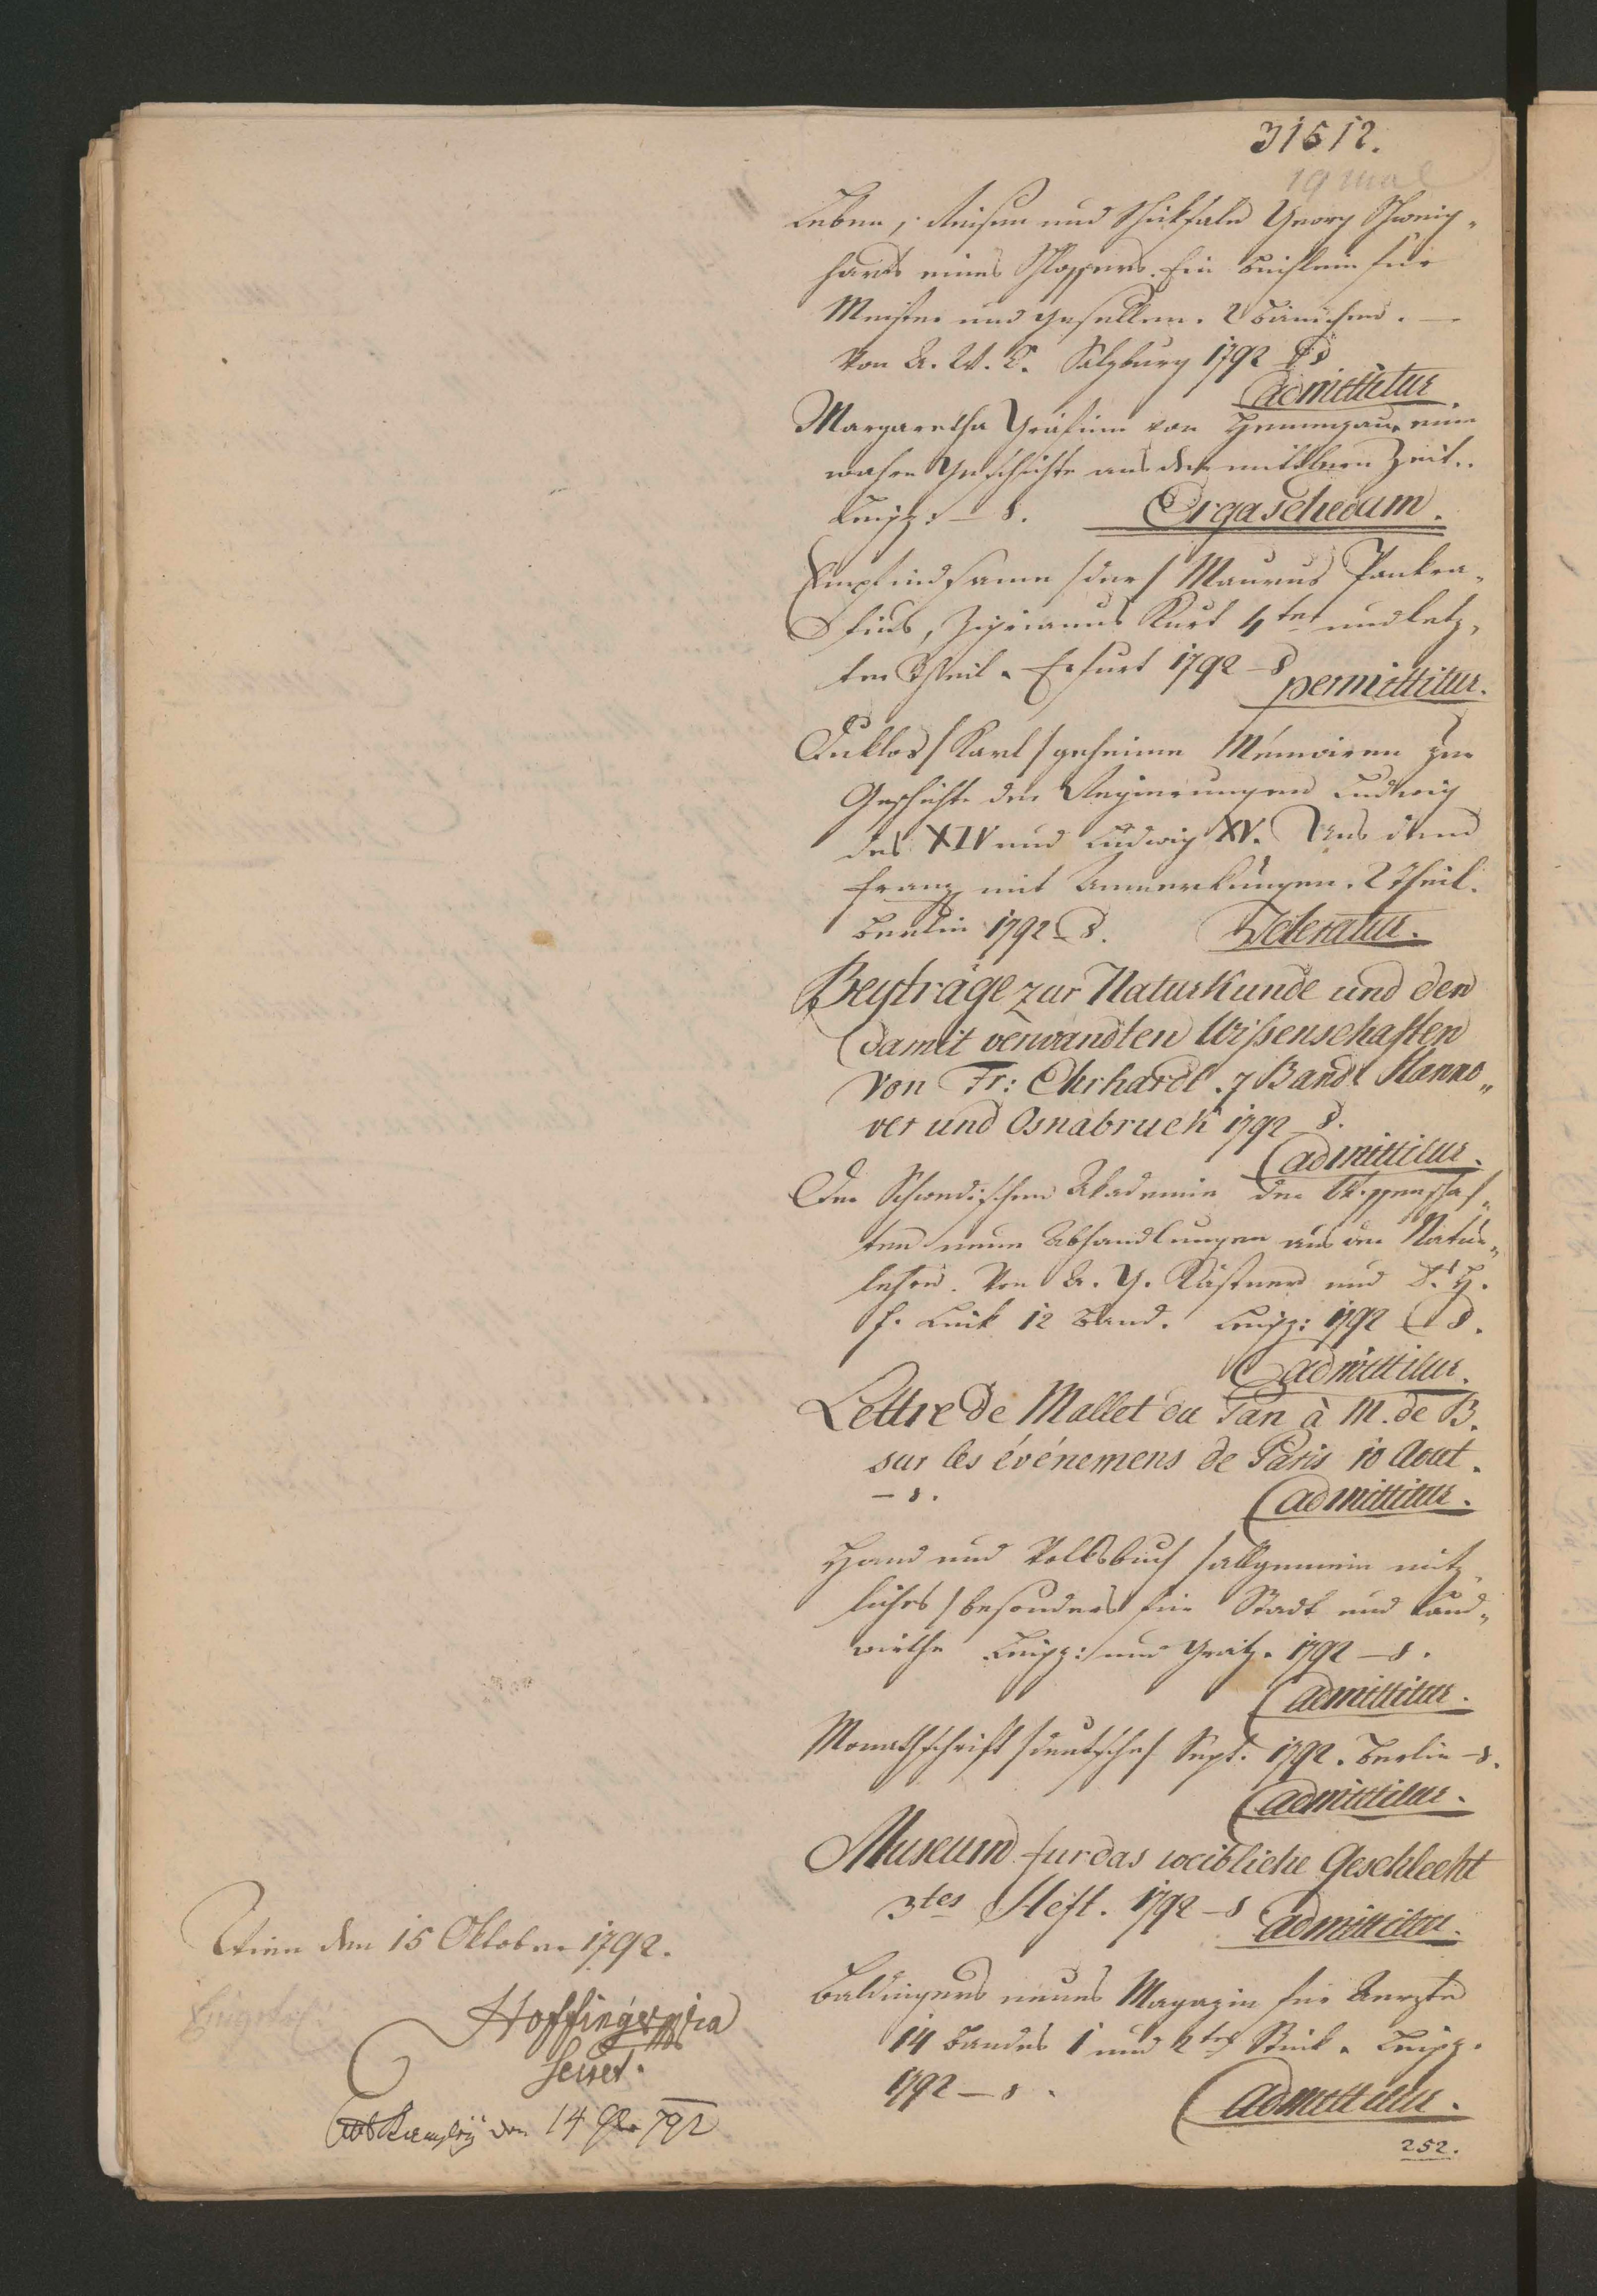 31512.
19 mal
Leben, Reisen und Schicksale Georg Schweig„
harts eines Schlossers. Ein Büchlein für
Meister und Gesellen. 2 Bändchen. —
Von A. W. C. Salzburg 1792 8
admittitur.
Margaretha Gräfinn von Hennegau, eine
wahre Geschichte aus den mittlern Zeit..
Leipz: – 8. Erga schedam.
Empfindsame /der/ Maurus Pankra„
tius, Ziprianus Kurt 4ter und letz„
ter Theil. Erfurt 1792 – 8
permittitur.
Duklos /Karl/ geheime Mémoiren zur
Geschichte der Regierungen Ludwig
des XIV und Ludwig XV. Aus dem
Franz mit Anmerkungen. 2 Theil.
Berlin 1792 – 8. Toleratur.
Beyträge zur Naturkunde und den
damit verwandten Wißenschaften
von Fr: Ehrhardt. 7 Band Hanno„
ver und Osnabruck 1792 – 8.
admittitur.
Der Schwedischen Akademie der Wissenschaf„
ten neue Abhandlungen aus der Natur„
lehre. Von A. G. Kästner und D. H.
F. Link 12 Band. Leipz: 1792 – 8.
admittitur.
Lettre de Mallet du Pan à M. de B.
sur les événemens de Paris 10 Aout.
– 8. admittitur.
Hand und Volksbuch /allgemein nütz„
liches/ besonders für Stadt und Land„
wirthe Leipz: und Gratz. 1792 – 8.
admittitur.
Monathschrift /deutsche/ Sept. 1792. Berlin – 8.
admittitur.
Museum fur das weibliche Geschlecht
3tes Heft. 1792 – 8 admittitur.
Baldingers neues Magazin für Aerzte
14 Bandes 1 und 2tes Stück. Leipz.
1792 – 8. admittitur.
252.
Wien den 15 Oktober 1792.
Hoffinger
Secret.
den 14 792